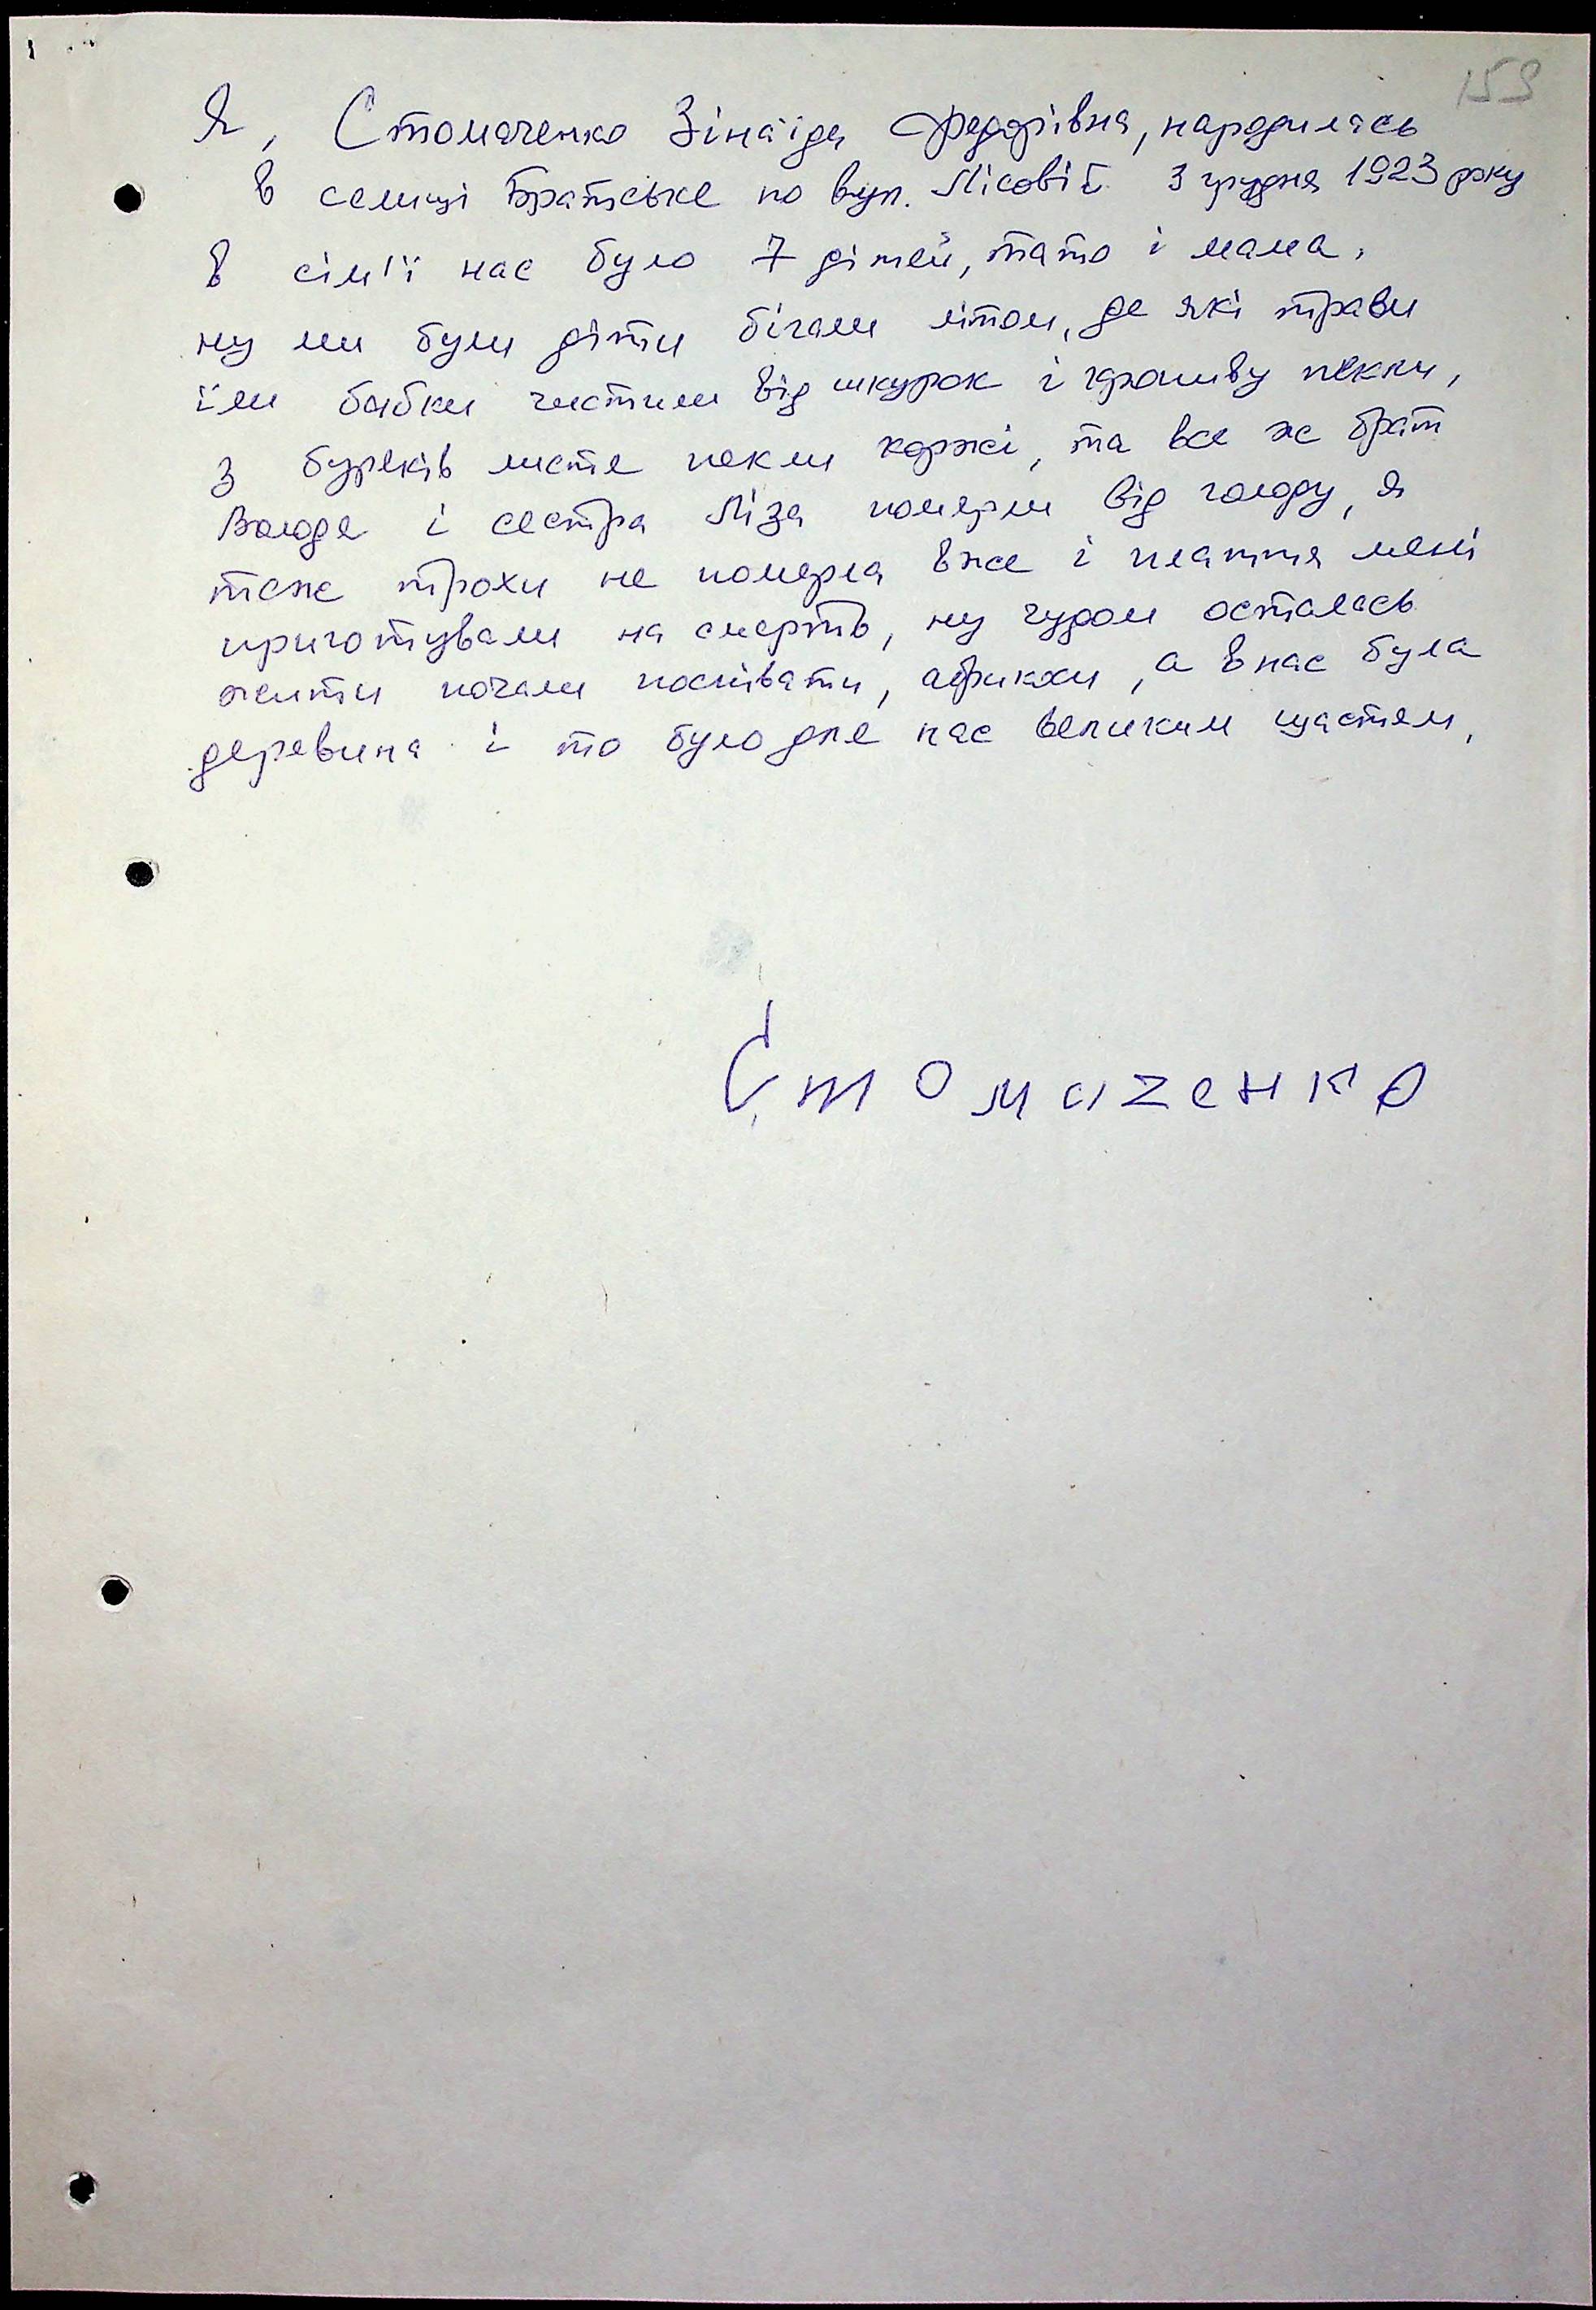 159
Я, Стомаченко Зінаїда Федорівна, народилась
в селищі Братське по вул. Лісовій 3 грудня 1923 року
В сім'ї нас було 7 дітей, тато і мама,
ну ми були діти бігали літом, де які трави
їли бабки чистили від шкурок і кропиву пекли,
з буряків листя пекли коржі, та все ж брат
Володя і сестра Ліза померли від голоду, я
теж трохи не померла вже і плаття мені
приготували на смерть, ну чудом осталась
жити почали поспівати, абрикохи, а в нас була
деревина і то було для нас великим щастям,
Стомаченко